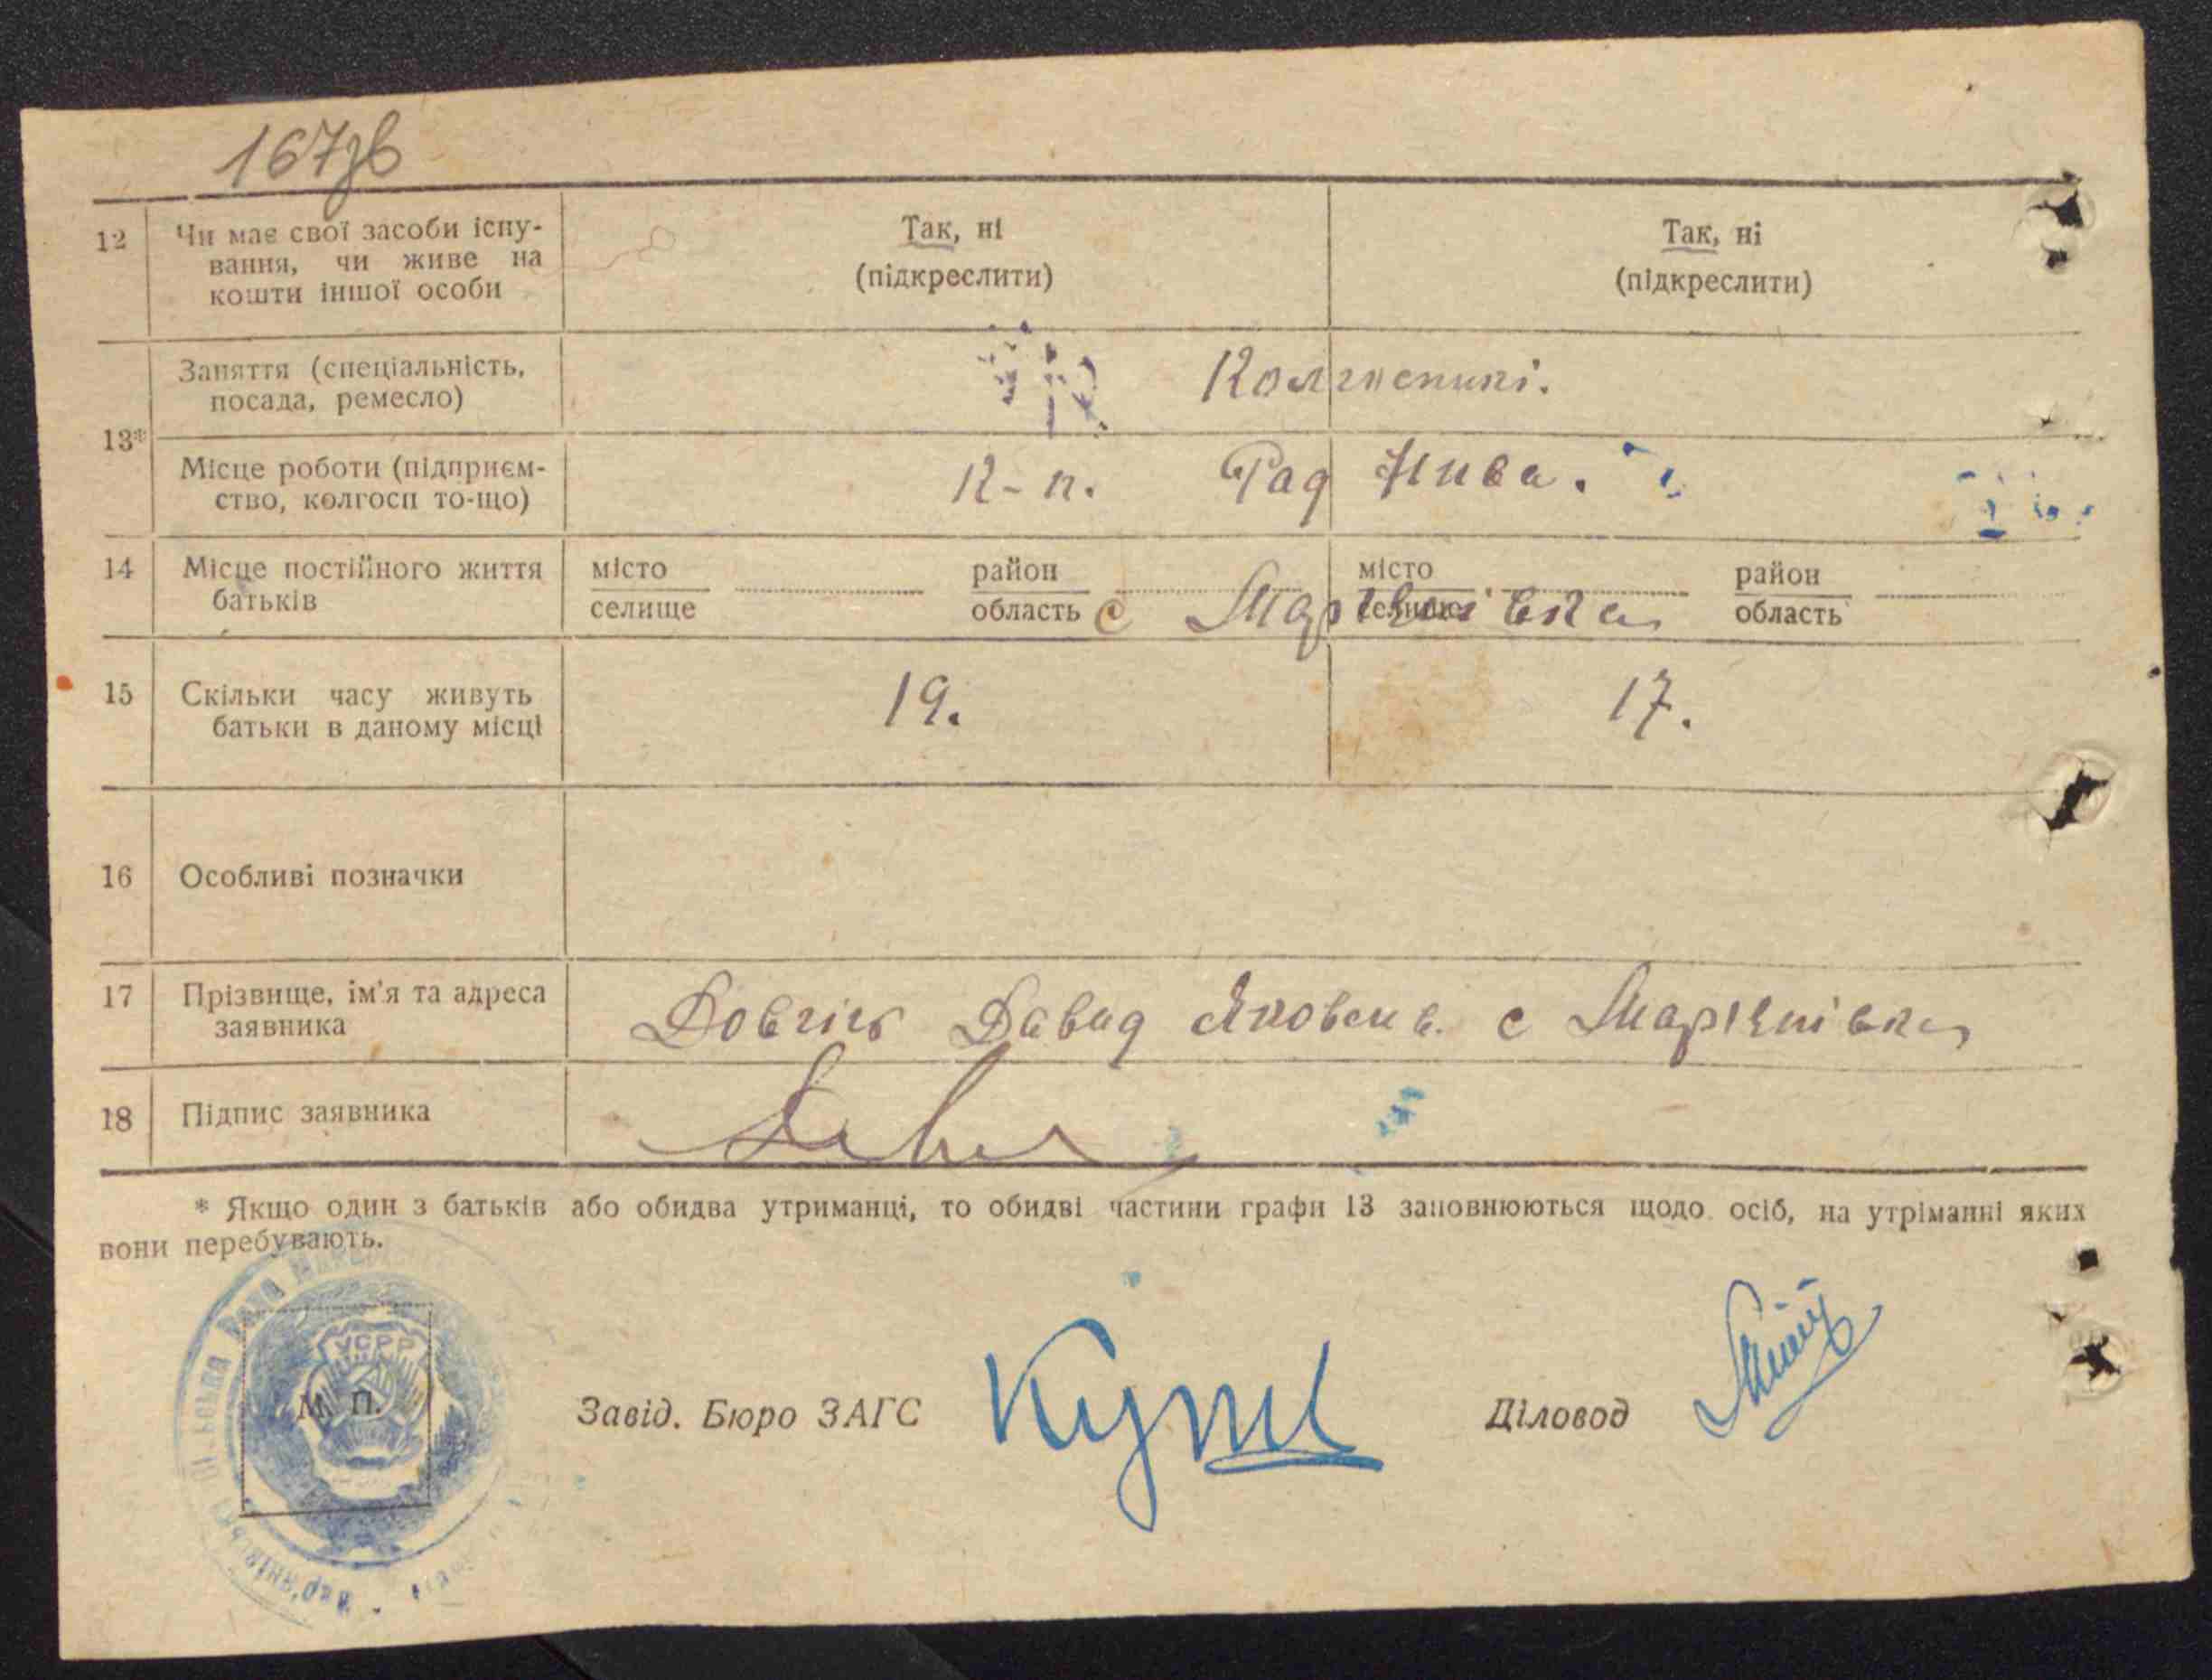 167зв
12 Чи має свої засоби існу-
вання, чи живе на
кошти іншої особи
Так, ні
(підкреслити)
Так, ні
(підкреслити)
13*
Заняття (спеціальність,
посада, ремесло)
Колгоспникі.
Місце роботи (підприєм-
ство, колгосп то-що)
К-п. Рад Нива.
14 Місце постійного життя
батьків
місто
селище
район
область
с
місто
селище
район
область
15 Скільки часу живуть
батьки в даному місці
19.
17.
16 Особливі позначки
17 Прізвище, ім'я та адреса
заявника
Давид Яковен. с
18 Підпис заявника
* Якщо один з батьків або обидва утриманці, то обидві частини графи 13 заповнюються щодо осіб, на утріманні яких
вони перебувають.
УСРР
М. П.
Завід. Бюро ЗАГС
Діловод